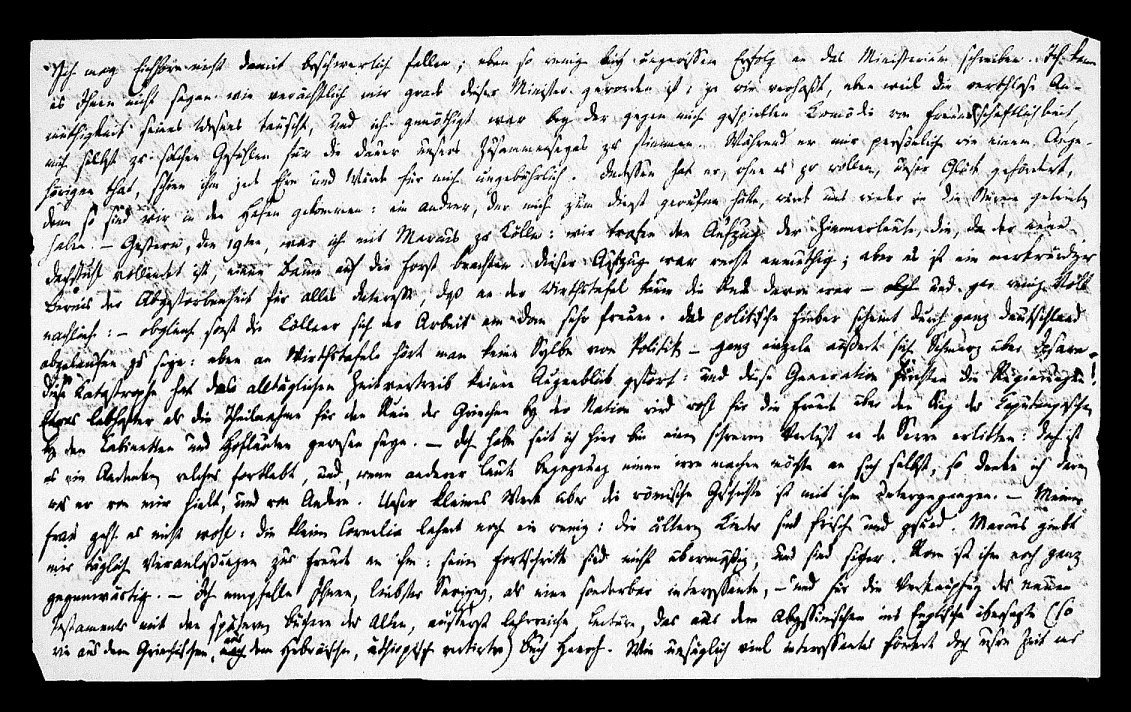 Ich mag Eichhorn nicht damit beschwerlich fallen; eben so wenig auf ungewissen Erfolg an das Ministerium schreiben. Ich kann
es Ihnen nicht sagen wie verächtlich mir grade dieser Minister geworden ist; ja wie verhaßt, eben weil die werthlose An-
müthigkeit seines Wesens täuscht, und ich genöthigt war bey der gegen mich gespielten Komödie von Freundschaftlichkeit
mich selbst zu solchen Gefühlen für die Dauer unsers Zusammenseyns zu stimmen. Während er mir persönlich wie einem Ange-
hörigen that, schien ihm jede Ehre und Würde für mich ungebührlich. Indessen hat er, ohne es zu wollen, unser Glück gefördert,
denn so sind wir in den Hafen gekommen: ein andrer, der mich zum Dienst gerufen hätte, würde uns wieder in die Stürme getrieben
haben. — Gestern, den 19ten, war ich mit Marcus zu Kölln: wir trafen den Aufzug der Zimmerleute, die, da der neue
Dachstuhl vollendet ist, einen Baum auf die Forst brachten. Dieser Aufzug war recht anmuthig; aber es ist ein merkwürdiger
Beweis der Abgestorbenheit für alles Interesse, daß an der Wirthstafel kaum die Rede davon war — und gar wenig Volk
nachlief: — obgleich sonst die Köllner sich der Arbeit am Dom sehr freuen. Das politische Fieber scheint durch ganz Deutschland
abgelaufen zu seyn: eben an Wirthstafeln hört man keine Sylbe von Politik — ganz einzeln äußert sich Schmerz über Ipsara.
Diese Katastrophe hat das alltäglichen Zeitvertreib keinen Augenblick gestört: und diese Generation fürchten die Regierungen!
Etwas lebhafter als die Theilnahme für den Ruin der Griechen bey der Nation wird wohl die Freude über den Sieg des
bey den Cabinetten und Hofleuten gewesen seyn. — Ich habe seit ich hier bin einen schweren Verlust an de Serre erlitten: doch ist
es ein Andenken welches fortlebt, und, wenn anderer Leute Begegnung einen irre machen möchte an sich selbst, so denke ich daran
was er von mir hielt, und von Andern. Unser kleines Werk über die römische Geschichte ist mit ihm untergegangen. — Meiner
Frau geht es nicht wohl: die kleine Cornelia lahmt noch ein wenig: die ältern Kinder sind frisch und gesund. Marcus giebt
mir täglich Veranlassungen zur Freude an ihm: seine Fortschritte sind nicht übermäßig, und sind sicher. Rom ist ihm noch ganz
gegenwärtig. — Ich empfehle Ihnen, liebster Savigny, als eine sonderbar interessante, — und für die Verknüpfung des neuen
Testaments mit den spätern Büchern des Alten, äußerst lehrreiche Lecture, das aus dem Abyssinischen ins Englische übersetzte (so
wie aus dem Griechischen, aus dem Hebräischen, äthiopisch vertirte) Buch Henoch. Wie unsäglich viel interessantes fördert doch unsre Zeit ans